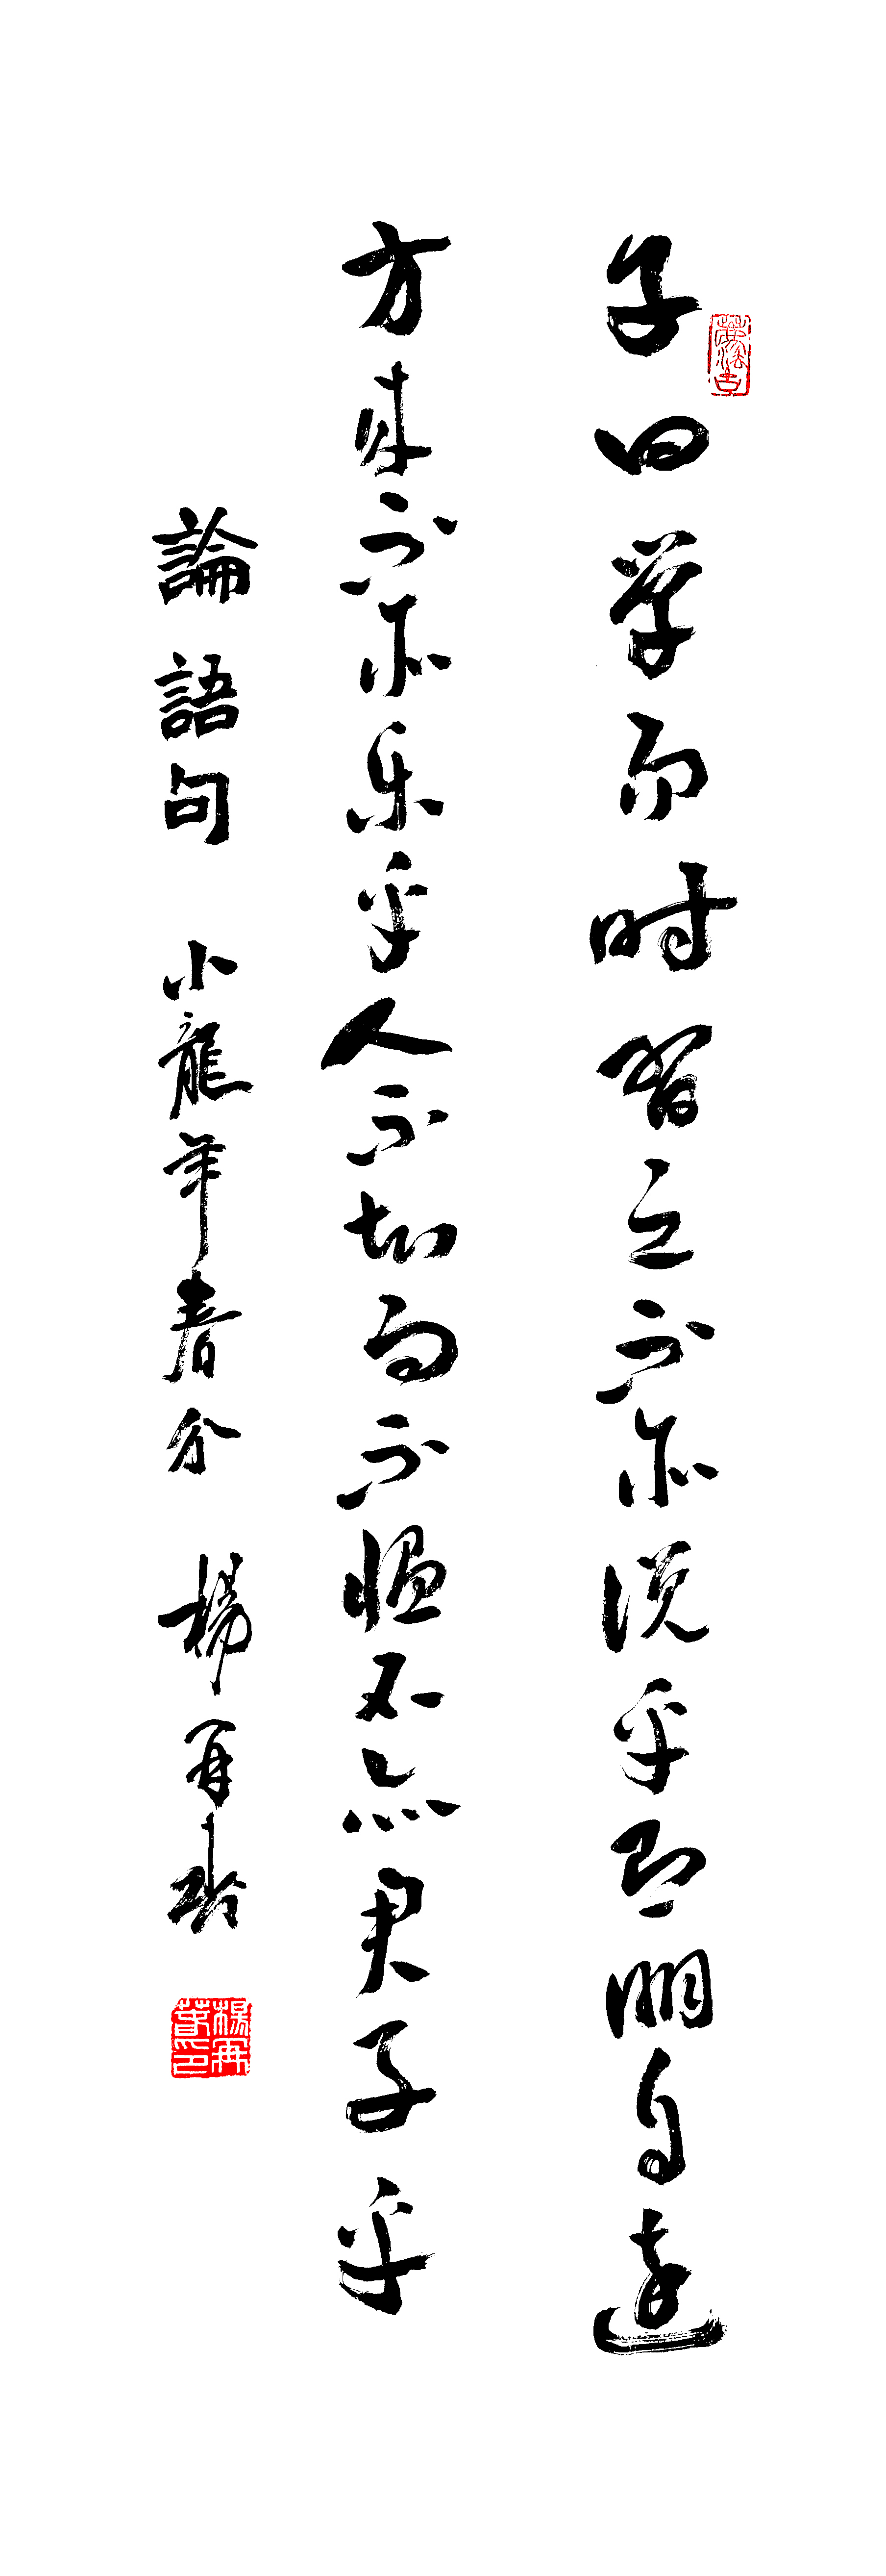 子曰学而时習之不亦说乎有朋自遠
方来不亦乐乎人不知而不愠不亦君子乎
論語句 小龍年春分 楊再春
楊再春印